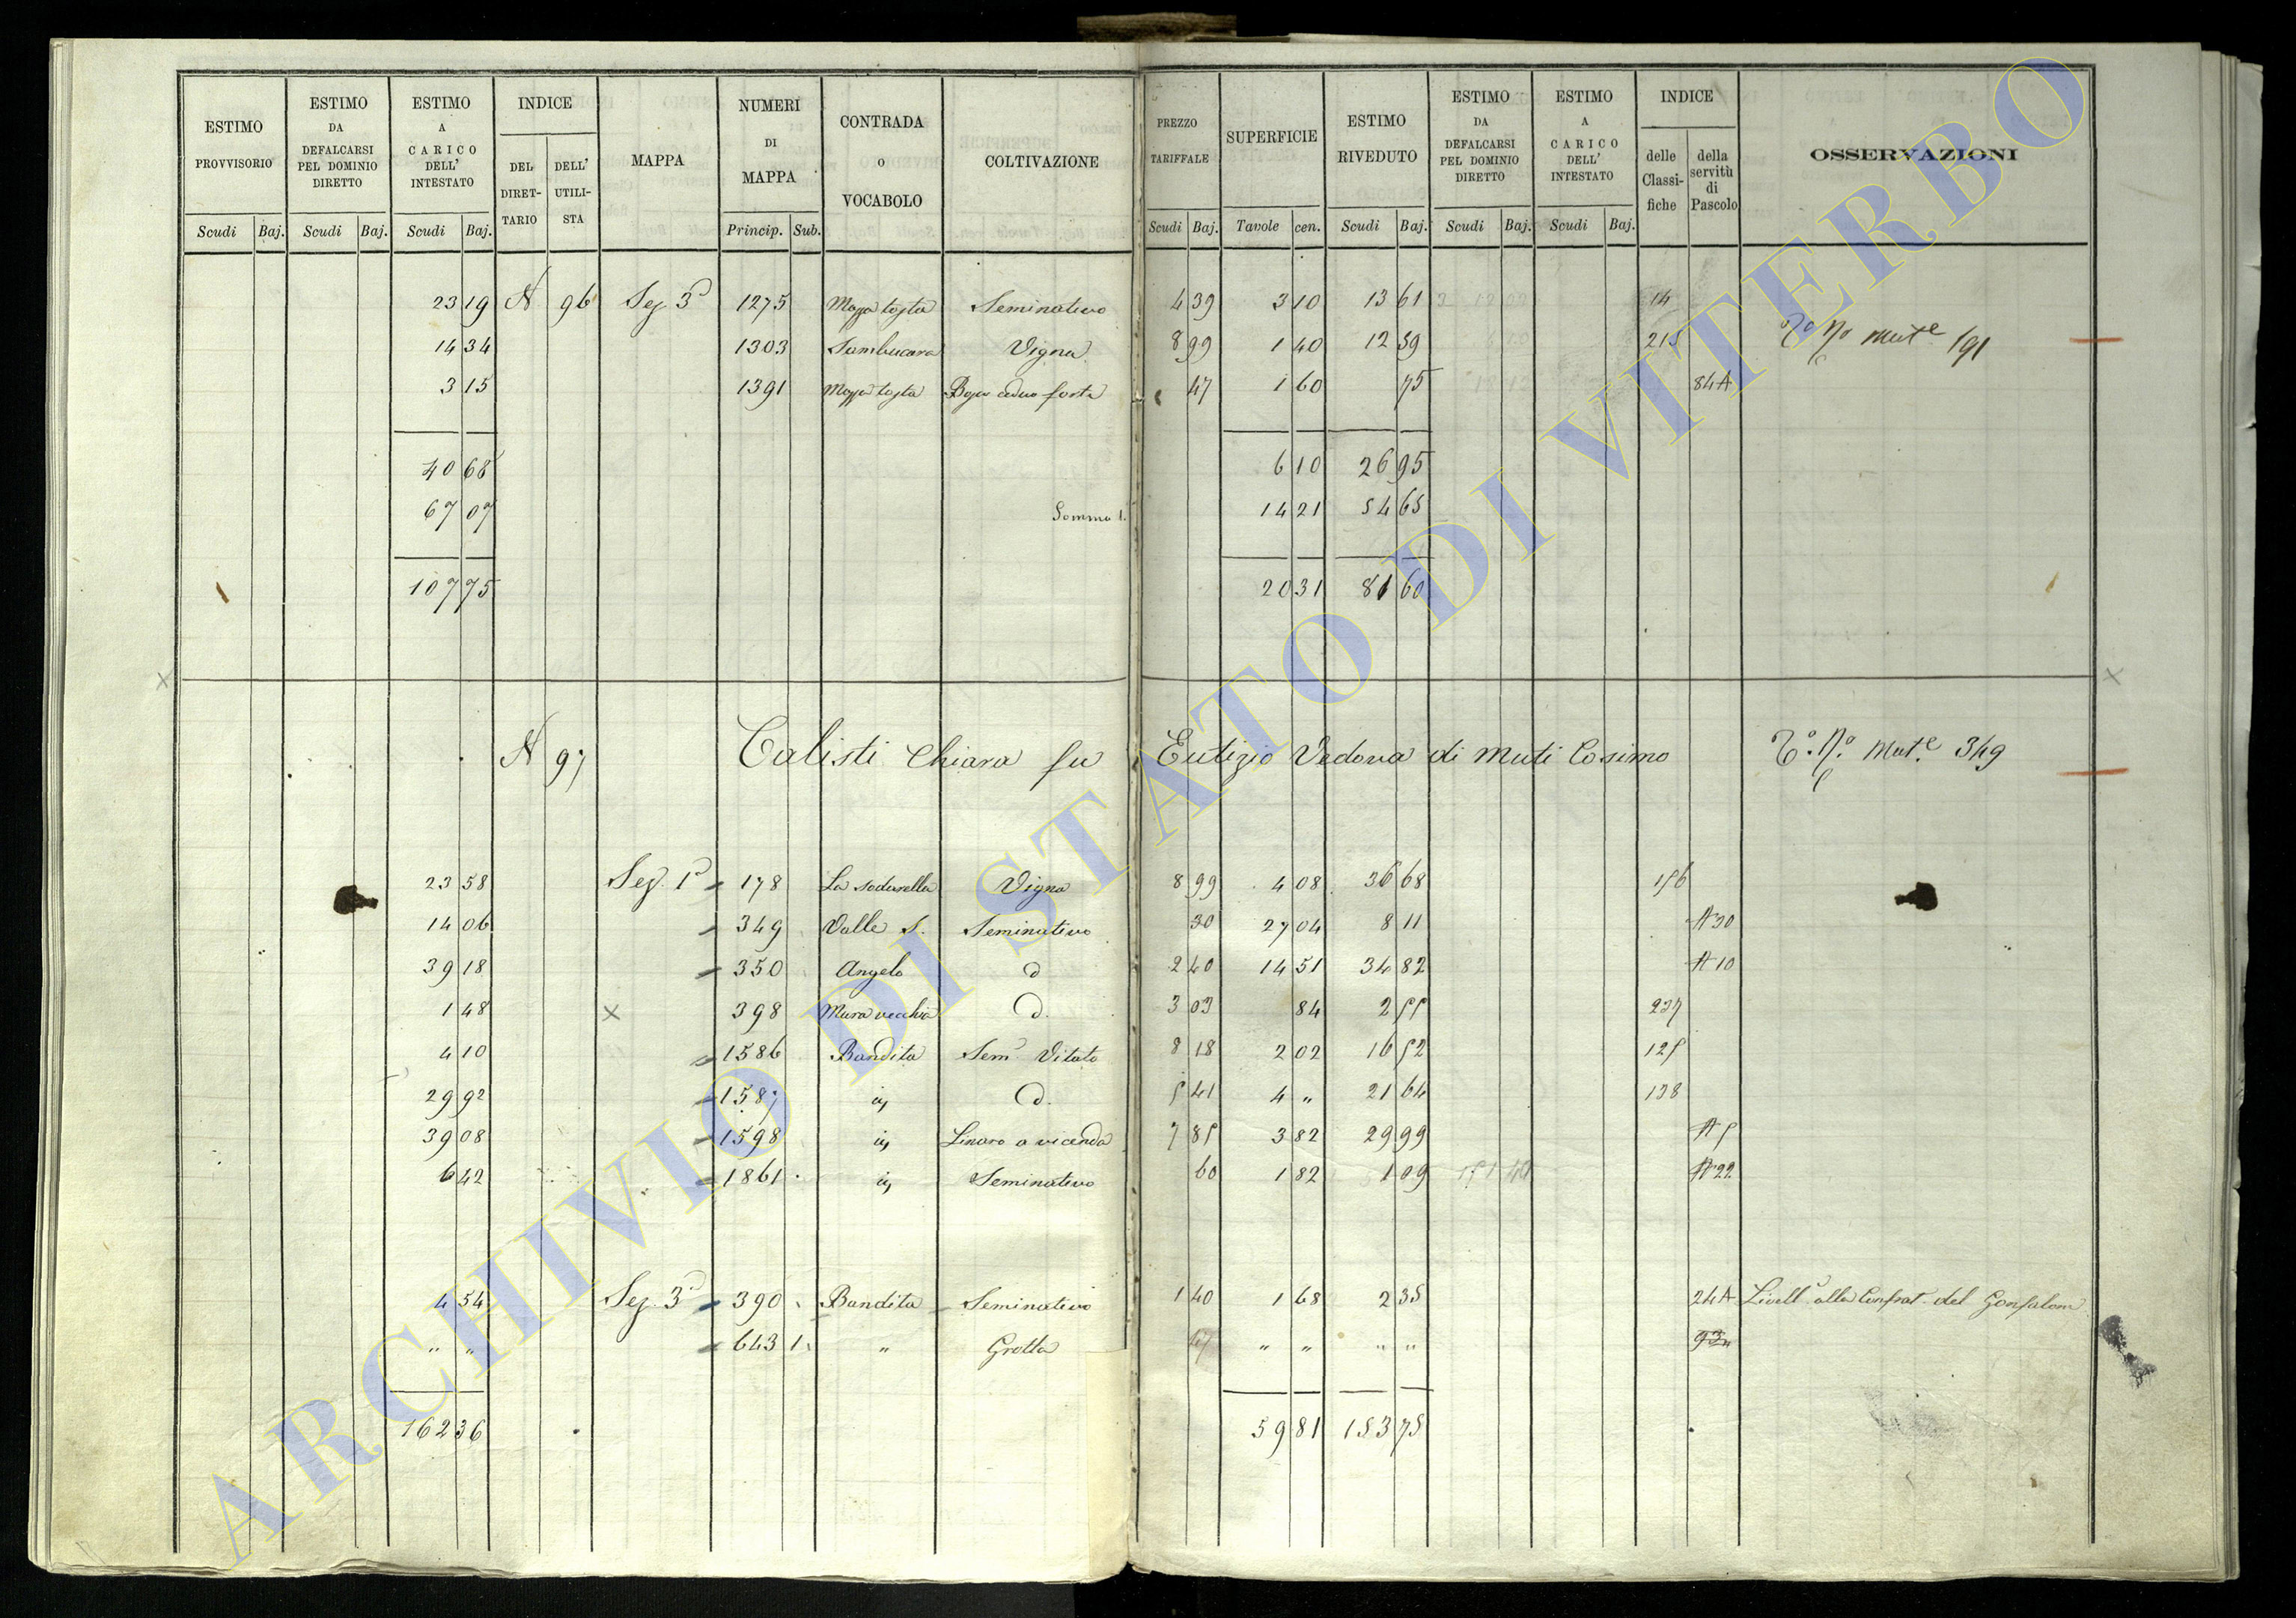 ESTIMO PROVVISORIO Scudi Baj.
ESTIMO DA DEFALCARSI PEL DOMINIO DIRETTO Scudi Baj.
ESTIMO A CARICO DELL' INTESTATO Scudi Baj.
INDICE DEL DIRET-TARIO DELL' UTILI-STA
MAPPA
NUMERI DI MAPPA Princip. Sub.
CONTRADA O VOCABOLO
COLTIVAZIONE
PREZZO TARIFFALE Scudi Baj.
SUPERFICIE Tavole cen.
ESTIMO RIVEDUTO Scudi Baj.
ESTIMO DA DEFALCARSI PEL DOMINIO DIRETTO Scudi Baj.
ESTIMO A CARICO DELL' INTESTATO Scudi Baj.
INDICE delle Classi-fiche della servitù di Pascolo
OSSERVAZIONI
23 19 N 96 Sez 3ª 1275 Mazza tosta Seminativo 4 39 3 10 13 61 14
14 34 1303 Sambucara Vigna 8 99 1 40 12 59 215 Mutᵉ 191
3 15 1391 Mazza tosta Bosco ceduo forte 47 1 60 75 84A
40 68 6 10 26 95
67 07 Somma 1. 14 21 54 65
107 75 20 31 81 60
N 97 Calisti Chiara fu Eutizio Vedova di Muti Cosimo Mutᵉ 349
23 58 Sez. 1ª 178 La sodarella Vigna 8 99 4 08 36 68 156
14 06 349 Valle S. Seminativo 30 27 04 8 11 A30
39 18 350 Angelo d 2 40 14 51 34 82 A10
1 48 × 398 Mura vecchia d. 3 03 84 2 55 237
4 10 1586 Bandita Semº Vitato 8 18 2 02 16 52 125
29 92 1587 d. 5 41 4 " 21 64 138
39 08 1598 Linaro a vicenda 7 85 3 82 29 99 A5
6 42 1861 Seminativo 60 1 82 1 09 A22
4 54 Sez. 3ª 390 Bandita Seminativo 1 40 1 68 2 35 24A Livellº alla Confrat. del Gonfalone
" " 643 1 " Grotta 47 " " " "
162 36 59 81 153 75
ARCHIVIO DI STATO DI VITERBO